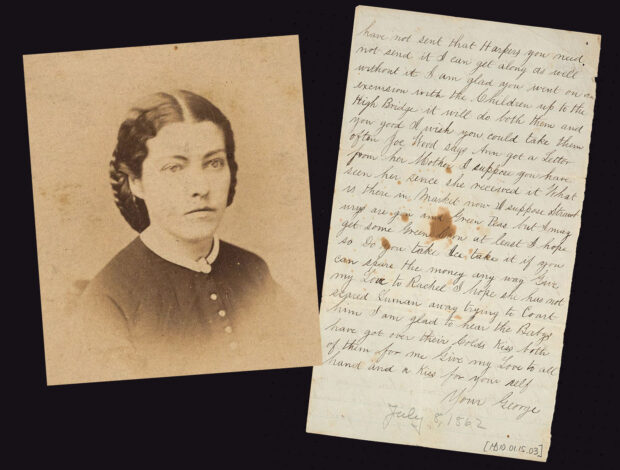 have not sent that Harpers you need
not send it I can get along as well
without it I am glad you went on an
excursion with the Children up to the
High Bridge it will do both them and
you good I wish you could take them
often Joe Wood says Ann got a Letter
from her Mother I suppose you have
seen her sence she received it What
is there in Market now I suppose Straw
urys are gon and Green Peas but I may
get some Green at least I hope
so. Do you take Ice take it if you
can spare the money any way Give
my Love to Rachel I hope she has not
scared Truman away trying to Court
him I am glad to hear the Babys
have got over their Colds Kiss both
of them for me Give my Love to all
hand and a Kiss for your self
Your George
July 8, 1862
[HD10.01.15.03]